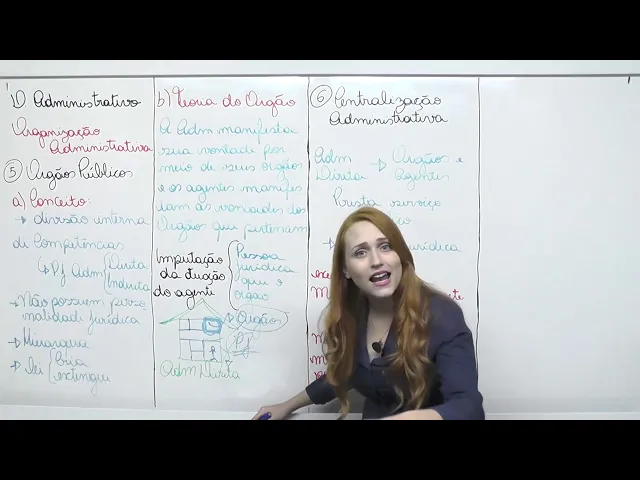 1) Administrativo
Organização
Administrativa
5 Órgãos Públicos
a) Conceito:
→ divisão interna
de Competências
↳ Pf Adm { Direta
Indireta
→ Não possuem perso
nalidade jurídica
→ Hierarquia
→ lei { Cria
extingue
b) Teoria do Órgão
A Adm manifesta
sua vontade por
meio de seus órgãos
e os agentes manifes
tam as vontades dos
Órgãos que pertencem
Imputação
da atuação
do agente
{ Pessoa
jurídica
que é
órgão
→ Órgãos
Pf
Adm Direta
6 Centralização
Administrativa
Adm
Direta
→ Órgãos e
agentes
Presta serviço
jurídica